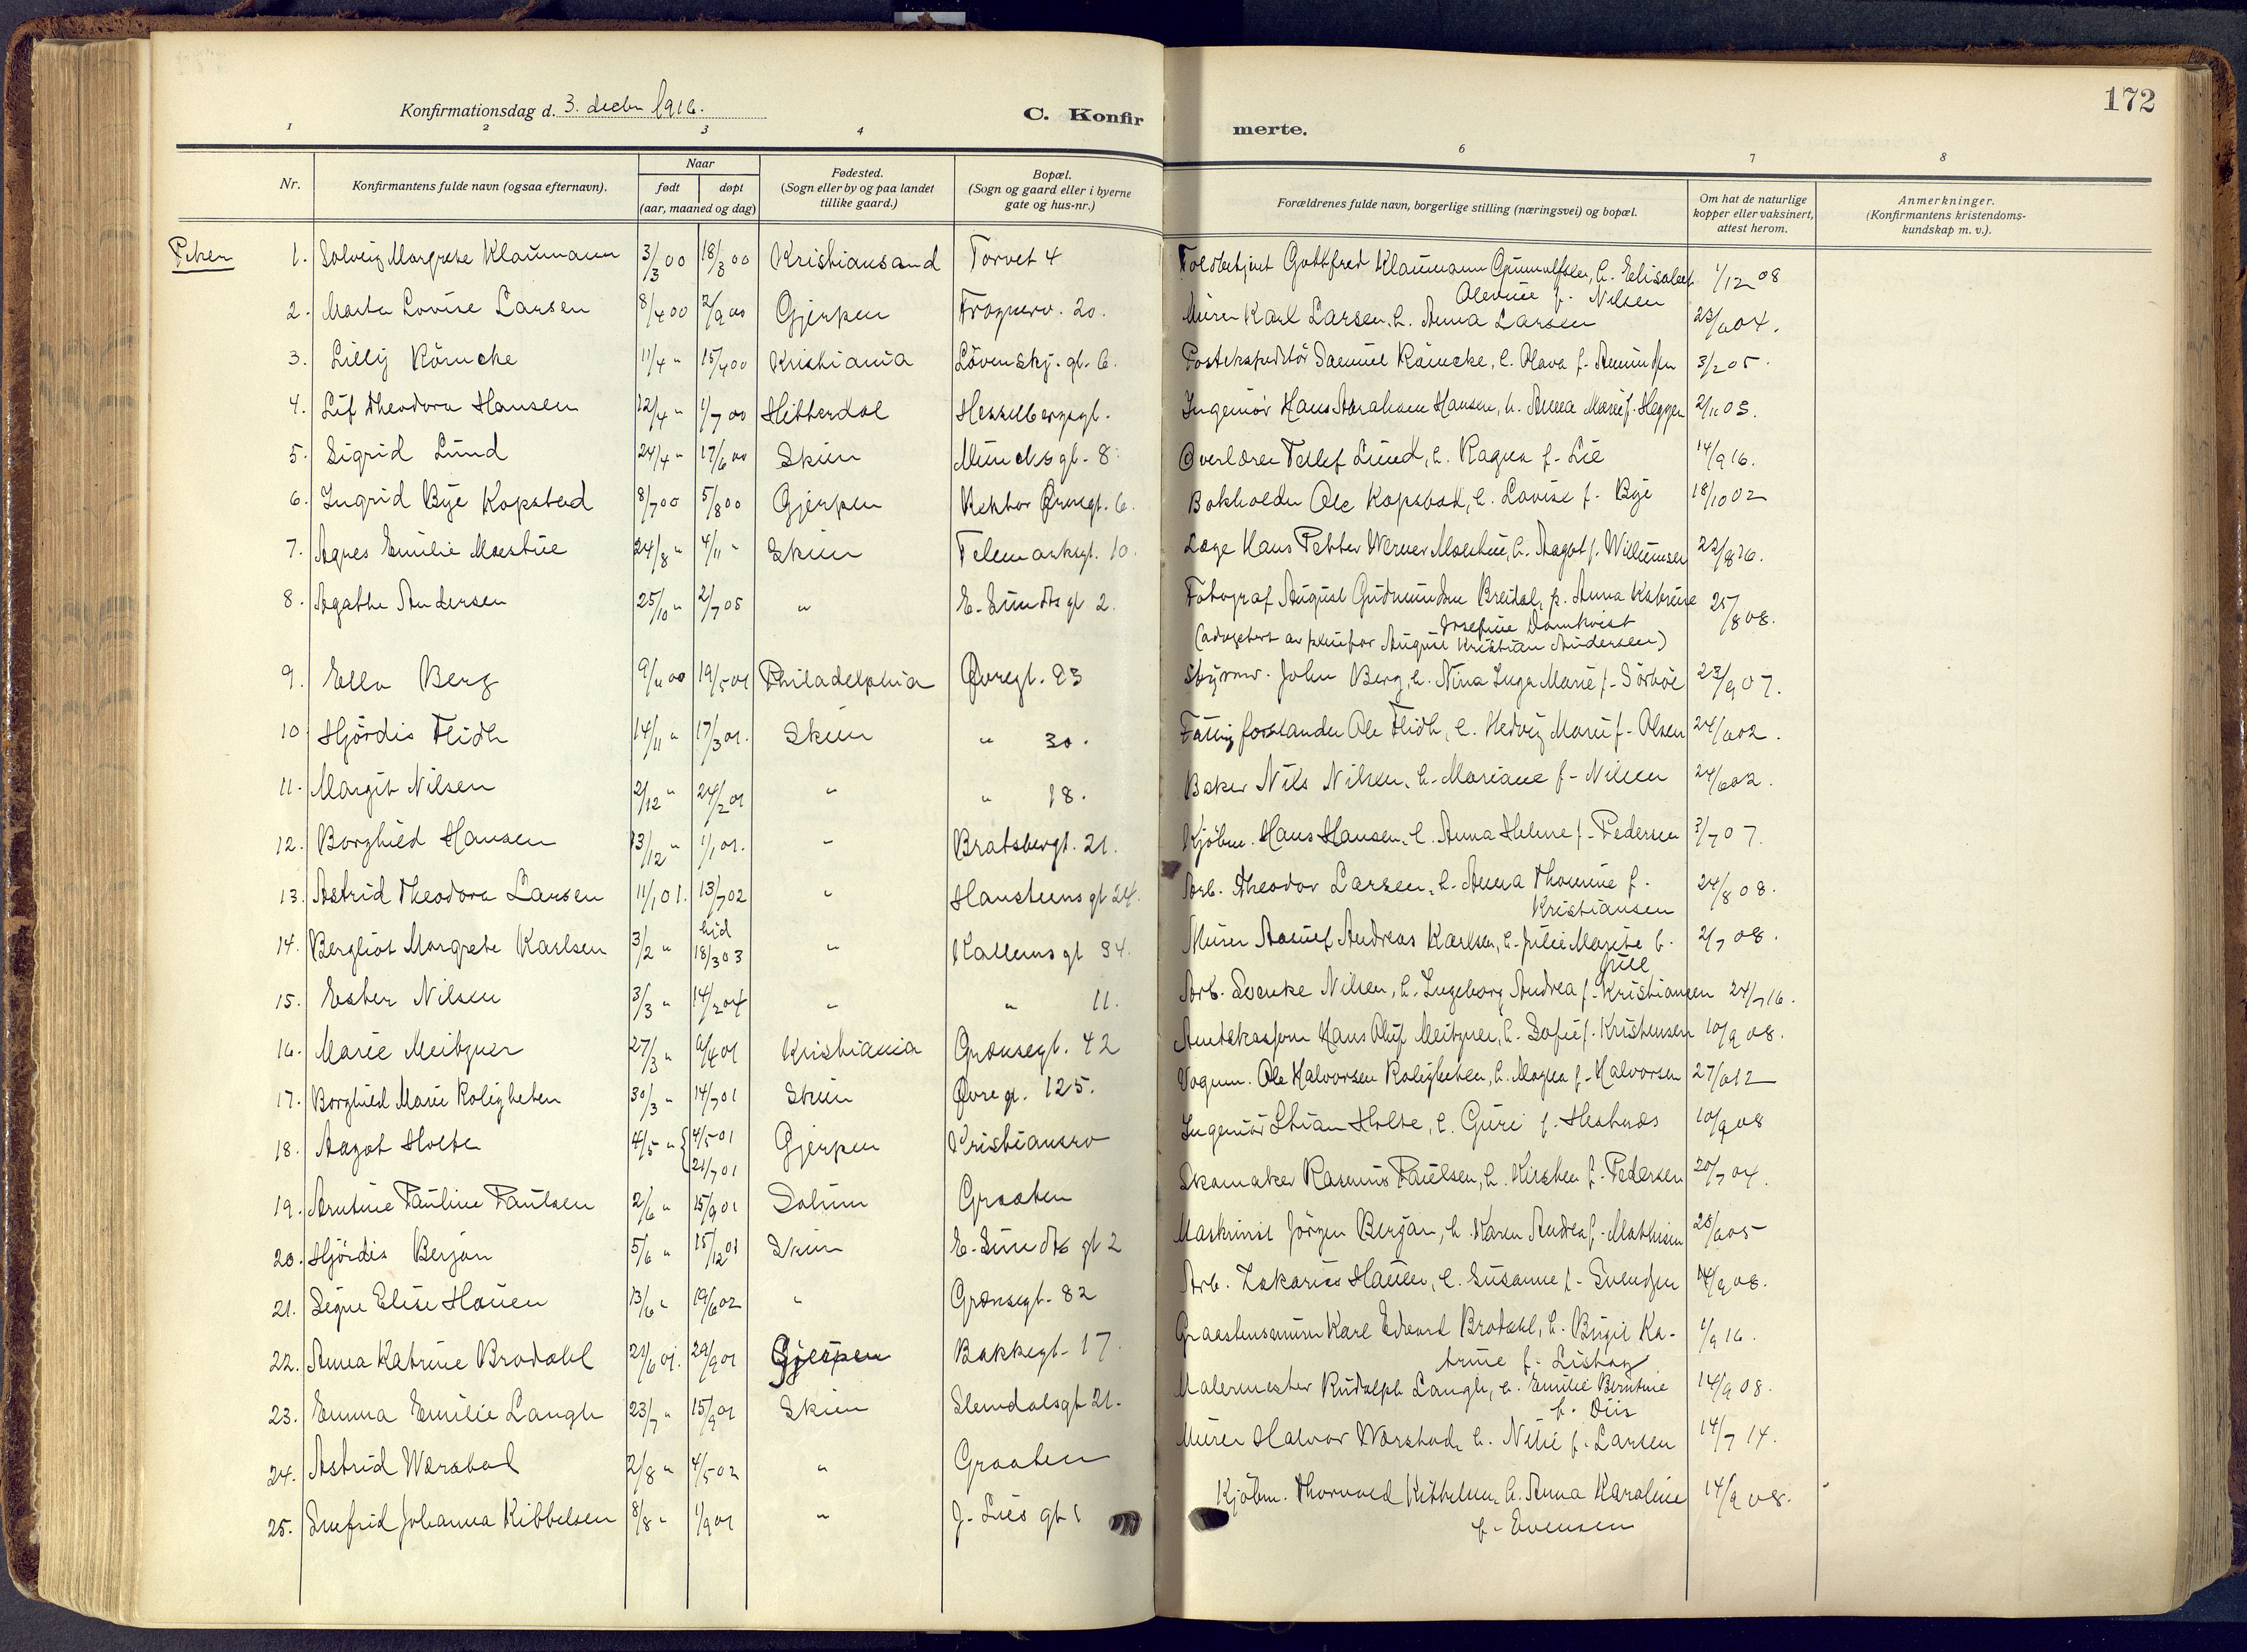 172
Konfirmationsdag d. 3. decbr 1916.
C. Konfirmerte.
1 2 3 4 6 7 8
Nr.
Konfirmantens fulde navn (ogsaa efternavn).
Naar
født døpt
(aar, maaned og dag)
Fødested.
(Sogn eller by og paa landet
tillike gaard.)
Bopæl.
(Sogn og gaard eller i byerne
gate og hus-nr.)
Forældrenes fulde navn, borgerlige stilling (næringsvei) og bopæl.
Om hat de naturlige
kopper eller vaksinert,
attest herom.
Anmerkninger.
(Konfirmantens kristendoms-
kundskap m. v.).
Piker
1. Solveig Margrete Klaumann 3/3 00 18/3 00 Kristiansand Torvet 4 Toldbetjent Gottfred Klaumann Gunnulfsen, h. Elisabet 1/12 08
Olevine f. Nilsen
2. Marta Lovise Larsen 8/4 00 2/9 00 Gjerpen Frognerv. 20. Murer Karl Larsen, h. Anna Larsen 23/6 04.
3. Lilly Römcke 11/4 " 15/4 00 Kristiania Lövenskj. gt. 6. Postekspeditör Samuel Römcke, h. Olava f. Amundsen 3/2 05.
4. Lif Theodora Hansen 12/4 " 1/7 00 Hitterdal Hesselbergsgt. Ingeniör Hans Abraham Hansen, h. Anna Marie f. Heggen 2/11 05.
5. Sigrid Lund 24/4 " 17/6 00 Skien Muncks gt. 8. Overlærer Detlef Lund, h. Ragna f. Lie 14/9 16.
6. Ingrid Bye Kopstad 8/7 00 5/8 00 Gjerpen Rektor Ørnsgt. 6. Bokholder Ole Kopstad, h. Lovise f. Bye 18/10 02
7. Agnes Emilie Moestue 24/8 " 4/11 " Skien Telemarksgt. 10. Læge Hans Petter Werner Moestue, h. Aagot f. Willumsen 22/8 26.
8. Agathe Andersen 25/10 " 2/7 05 " E. Sundts gt 2. Fotograf August Gudmundsen Breidal, p. Anna Katrine 25/8 08.
Josefine Damkvist
(adoptert av pleiefar August Kristian Andersen)
9. Ella Berg 9/11 00 19/5 01 Philadelphia Øvregt. 93 Styrm. John Berg, h. Nina Inga Marie f. Sörböe 23/9 07.
10. Hjördis Flidh 14/11 " 17/3 01. Skien " 30. Fattigforstander Ole Flidh, h. Hedvig Marie f. Olsen 24/6 02.
11. Margit Nilsen 2/12 " 24/2 01 " " 18. Baker Nils Nilsen, h. Mariane f. Nilsen 24/6 02.
12. Borghild Hansen 13/12 " 1/1 01. " Bratsbergt. 21. Kjöbm. Hans Hansen, h. Anna Helene f. Pedersen 3/7 07.
13. Astrid Theodora Larsen 11/1 01. 13/7 02 " Hansteens gt 24. Arb. Theodor Larsen, h. Anna Thomine f. 24/8 08.
Kristiansen
14. Bergliot Margrete Karlsen 3/2 " 18/3 03 " Kallems gt 34. Murer Adolf Andreas Karlsen, h. Julie Marite f. 2/7 08.
15. Ester Nilsen 3/3 " 14/2 04 " " 11. Arb. Svenke Nilsen, h. Ingeborg Andrea f. Kristiansen 24/7 16.
16. Marie Meitzner 27/3 " 6/4 01 Kristiania Grænsegt. 42 Amtskasserer Hans Oluf Meitzner, h. Sofie f. Kristensen 10/9 08.
17. Borghild Marie Roligheten 30/3 " 14/7 01 Skien Øvre gt. 125. Vognm. Ole Halvorsen Roligheten, h. Magna f. Halvorsen 27/6 12
18. Aagot Holte 4/5 " { 4/5 01 21/7 01 Gjerpen Kristiansro Ingeniör Stian Holte, h. Guri f. Hestnæs 10/9 08
19. Arntine Pauline Paulsen 2/6 " 15/9 01 Solum Graaten Skomaker Rasmus Paulsen, h. Kirsten f. Pedersen 20/7 04.
20. Hjördis Berjan 5/6 " 15/12 01 Skien E. Sundts gt 2 Maskinist Jörgen Berjan, h. Karen Andrea f. Mathisen 28/6 05
21. Signe Elise Hauen 13/6 " 19/6 02 " Grænsegt. 82 Arb. Zakarias Hauen, h. Susanne f. Svendsen 14/9 08.
22. Anna Katrine Brodahl 21/6 01. 29/9 01 Gjerpen Bakkegt. 17 Graastensmurer Karl Edvard Brodahl, h. Birgit Ka- 1/9 16.
trine f. Lishaug
23. Emma Emilie Langh 23/7 " 15/9 01 Skien Slemdalsgt 21. Malermester Rudolph Langh, h. Emilie Berntine 14/9 08.
f. Diis
24. Astrid Wærstad 2/8 " 4/5 02 " Graaten Murer Halvor Wærstad, h. Nilie f. Larsen 14/7 14.
25. Snefrid Johanna Kittelsen 8/8 " 1/9 01 " J. Lies gt 1 Kjöbm. Thorvald Kittelsen, h. Anna Karoline 14/9 08.
f. Evensen